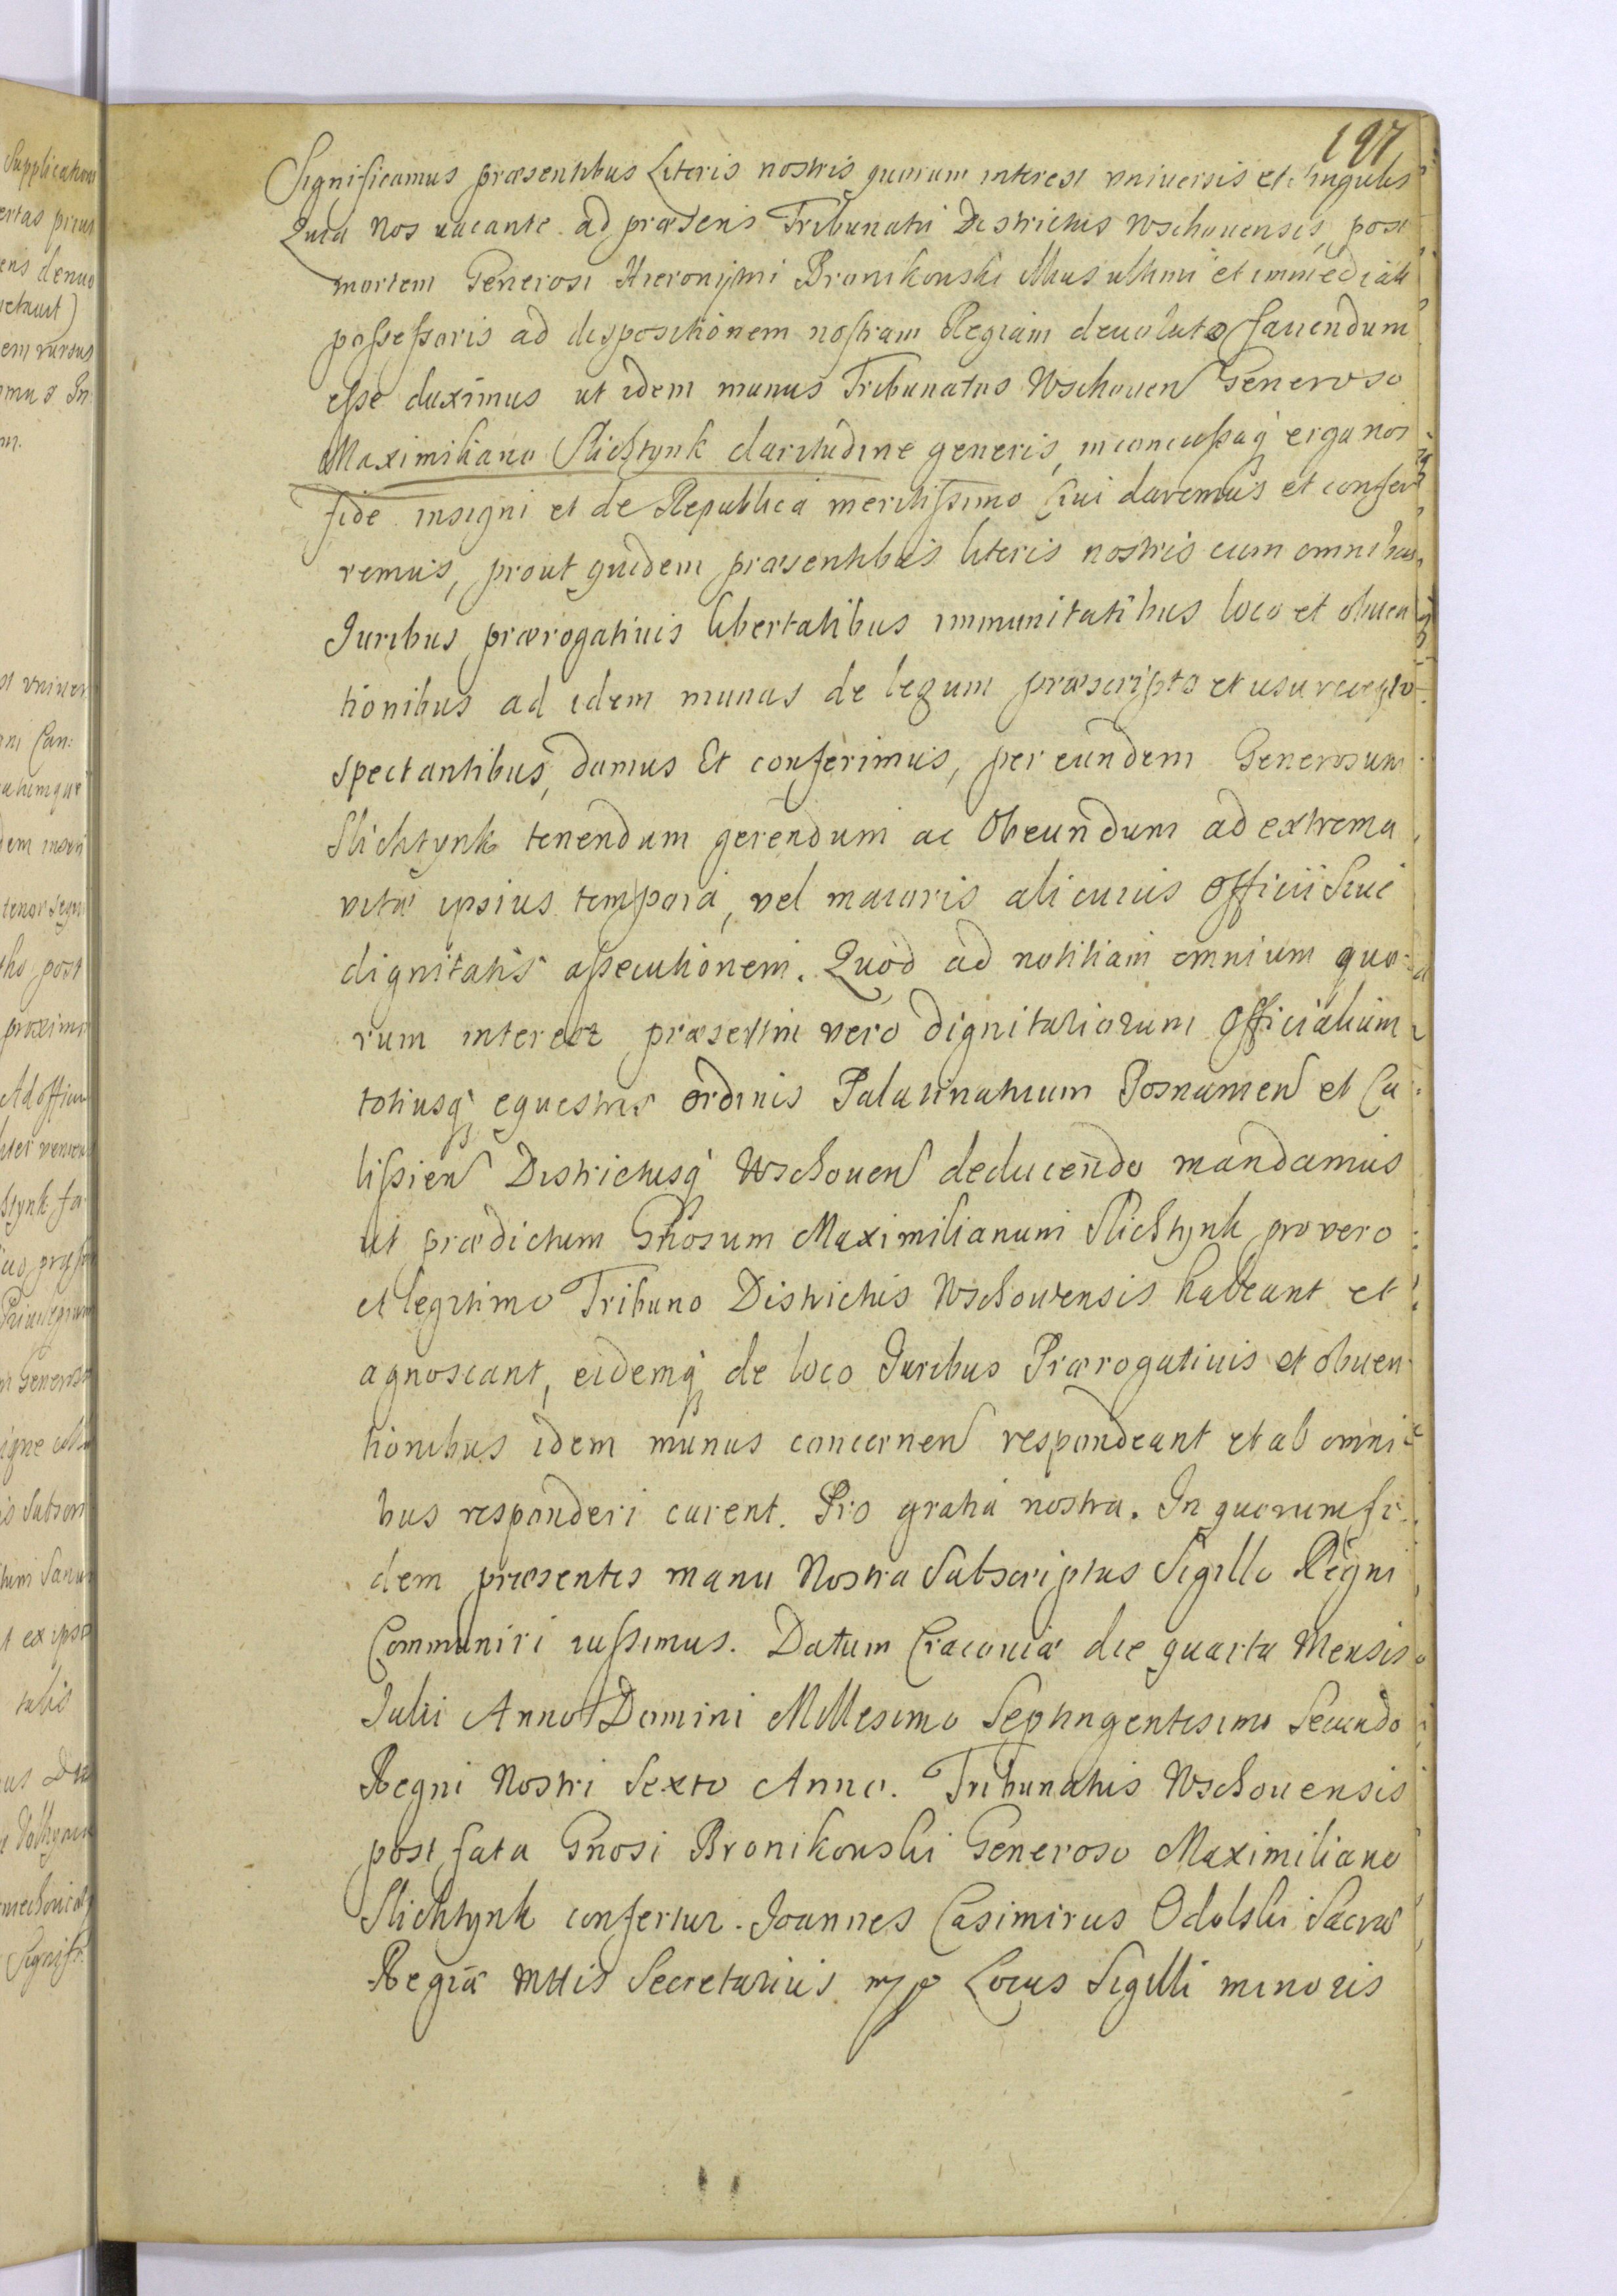 197
Significamus præsentibus Literis nostris quorum interest vniuersis et singulis
Quia Nos vacante ad præsens Tribunatu Districtus Wschouensis, post
mortem Generosi Hieronymi Bronikowski illius ultimi et immediati
possessoris ad dispositionem nostram Regiam deuoluto fauendum
esse duximus ut idem munus Tribunatus Wschouen Generoso
Maximiliano Slichtynk claritudine generis, inconcussaq erga nos
fide insigni et de Republica meritissimo Ciui daremus et confer
remus, prout quidem præsentibus literis nostris cum omnibus
Iuribus prærogatiuis libertatibus immunitatibus loco et obuen
tionibus ad idem munus de legum præscripto et usu recepto
spectantibus, damus Et conferimus, per eundem Generosum
Slichtynk tenendum gerendum ac Obeundum ad extrema
vitæ ipsius tempora, vel maioris alicuius Officii Siue
dignitatis assecutionem. Quod ad notitiam omnium quo
rum interest præsertim vero Dignitariorum Officialium
totiusq equestris ordinis Palatinatuum Posnanien et Ca
lissien Districtusq Wschouen deducendo mandamus
ut prædictum Gnosum Maximilianum Slichtynk pro vero
et legitimo Tribuno Districtus Wschouensis habeant et
agnoscant, eidemq de loco Iuribus Prærogatiuis et obuen
tionibus idem munus concernen respondeant et ab omni
bus responderi curent. Pro gratia nostra. In quorum fi
dem præsentes manu Nostra Subscriptas Sigillo Regni
Communiri iussimus. Datum Cracouiæ die quarta Mensis
Iulii Anno Domini Millesimo Septingentesimo Secundo
Regni Nostri Sexto Anno. Tribunatus Wschouensis
post fata Gnosi Bronikowski Generoso Maximiliano
Slichtynk confertur. Joannes Casimirus Odolski Sacræ
Regiæ Mttis Secretarius mp Locus Sigilli minoris